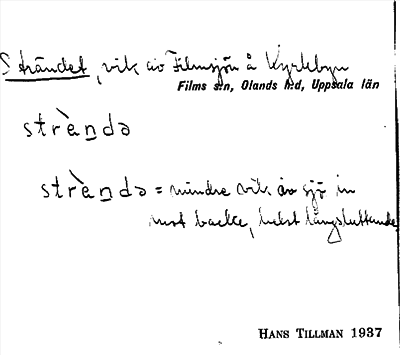 Strändet, vik av Filmsjön å Kyrkbyn
Films sn, Olands hd, Uppsala län
strèndə
strèndə = mindre vik av sjö in
mot backe, helst långsluttande
HANS TILLMAN 1937